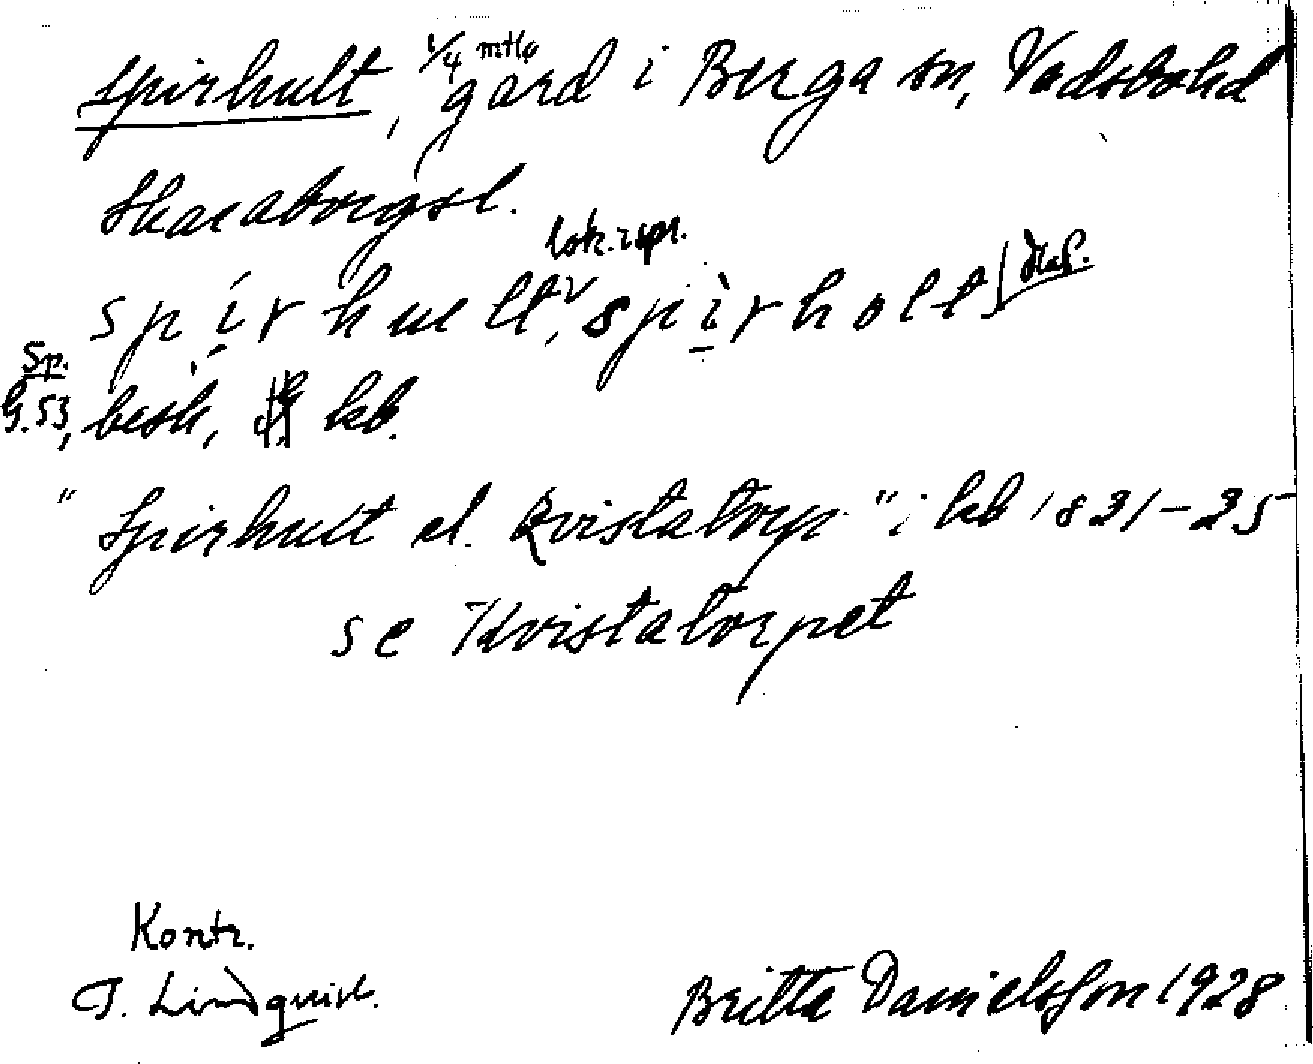 Spirhult, 1/4 mtlg gård i Berga sn, Vadsbohd
Skaraborgsl.
lok.repr.
spirhuelt, spirholt
Sp.
G.53, besk, kb.
"Spirhult el. Qvistatorp" i kb 1821-25
se Kvistatorpet
Kontr.
I. Lindquist.
Britta Danielsson 1928